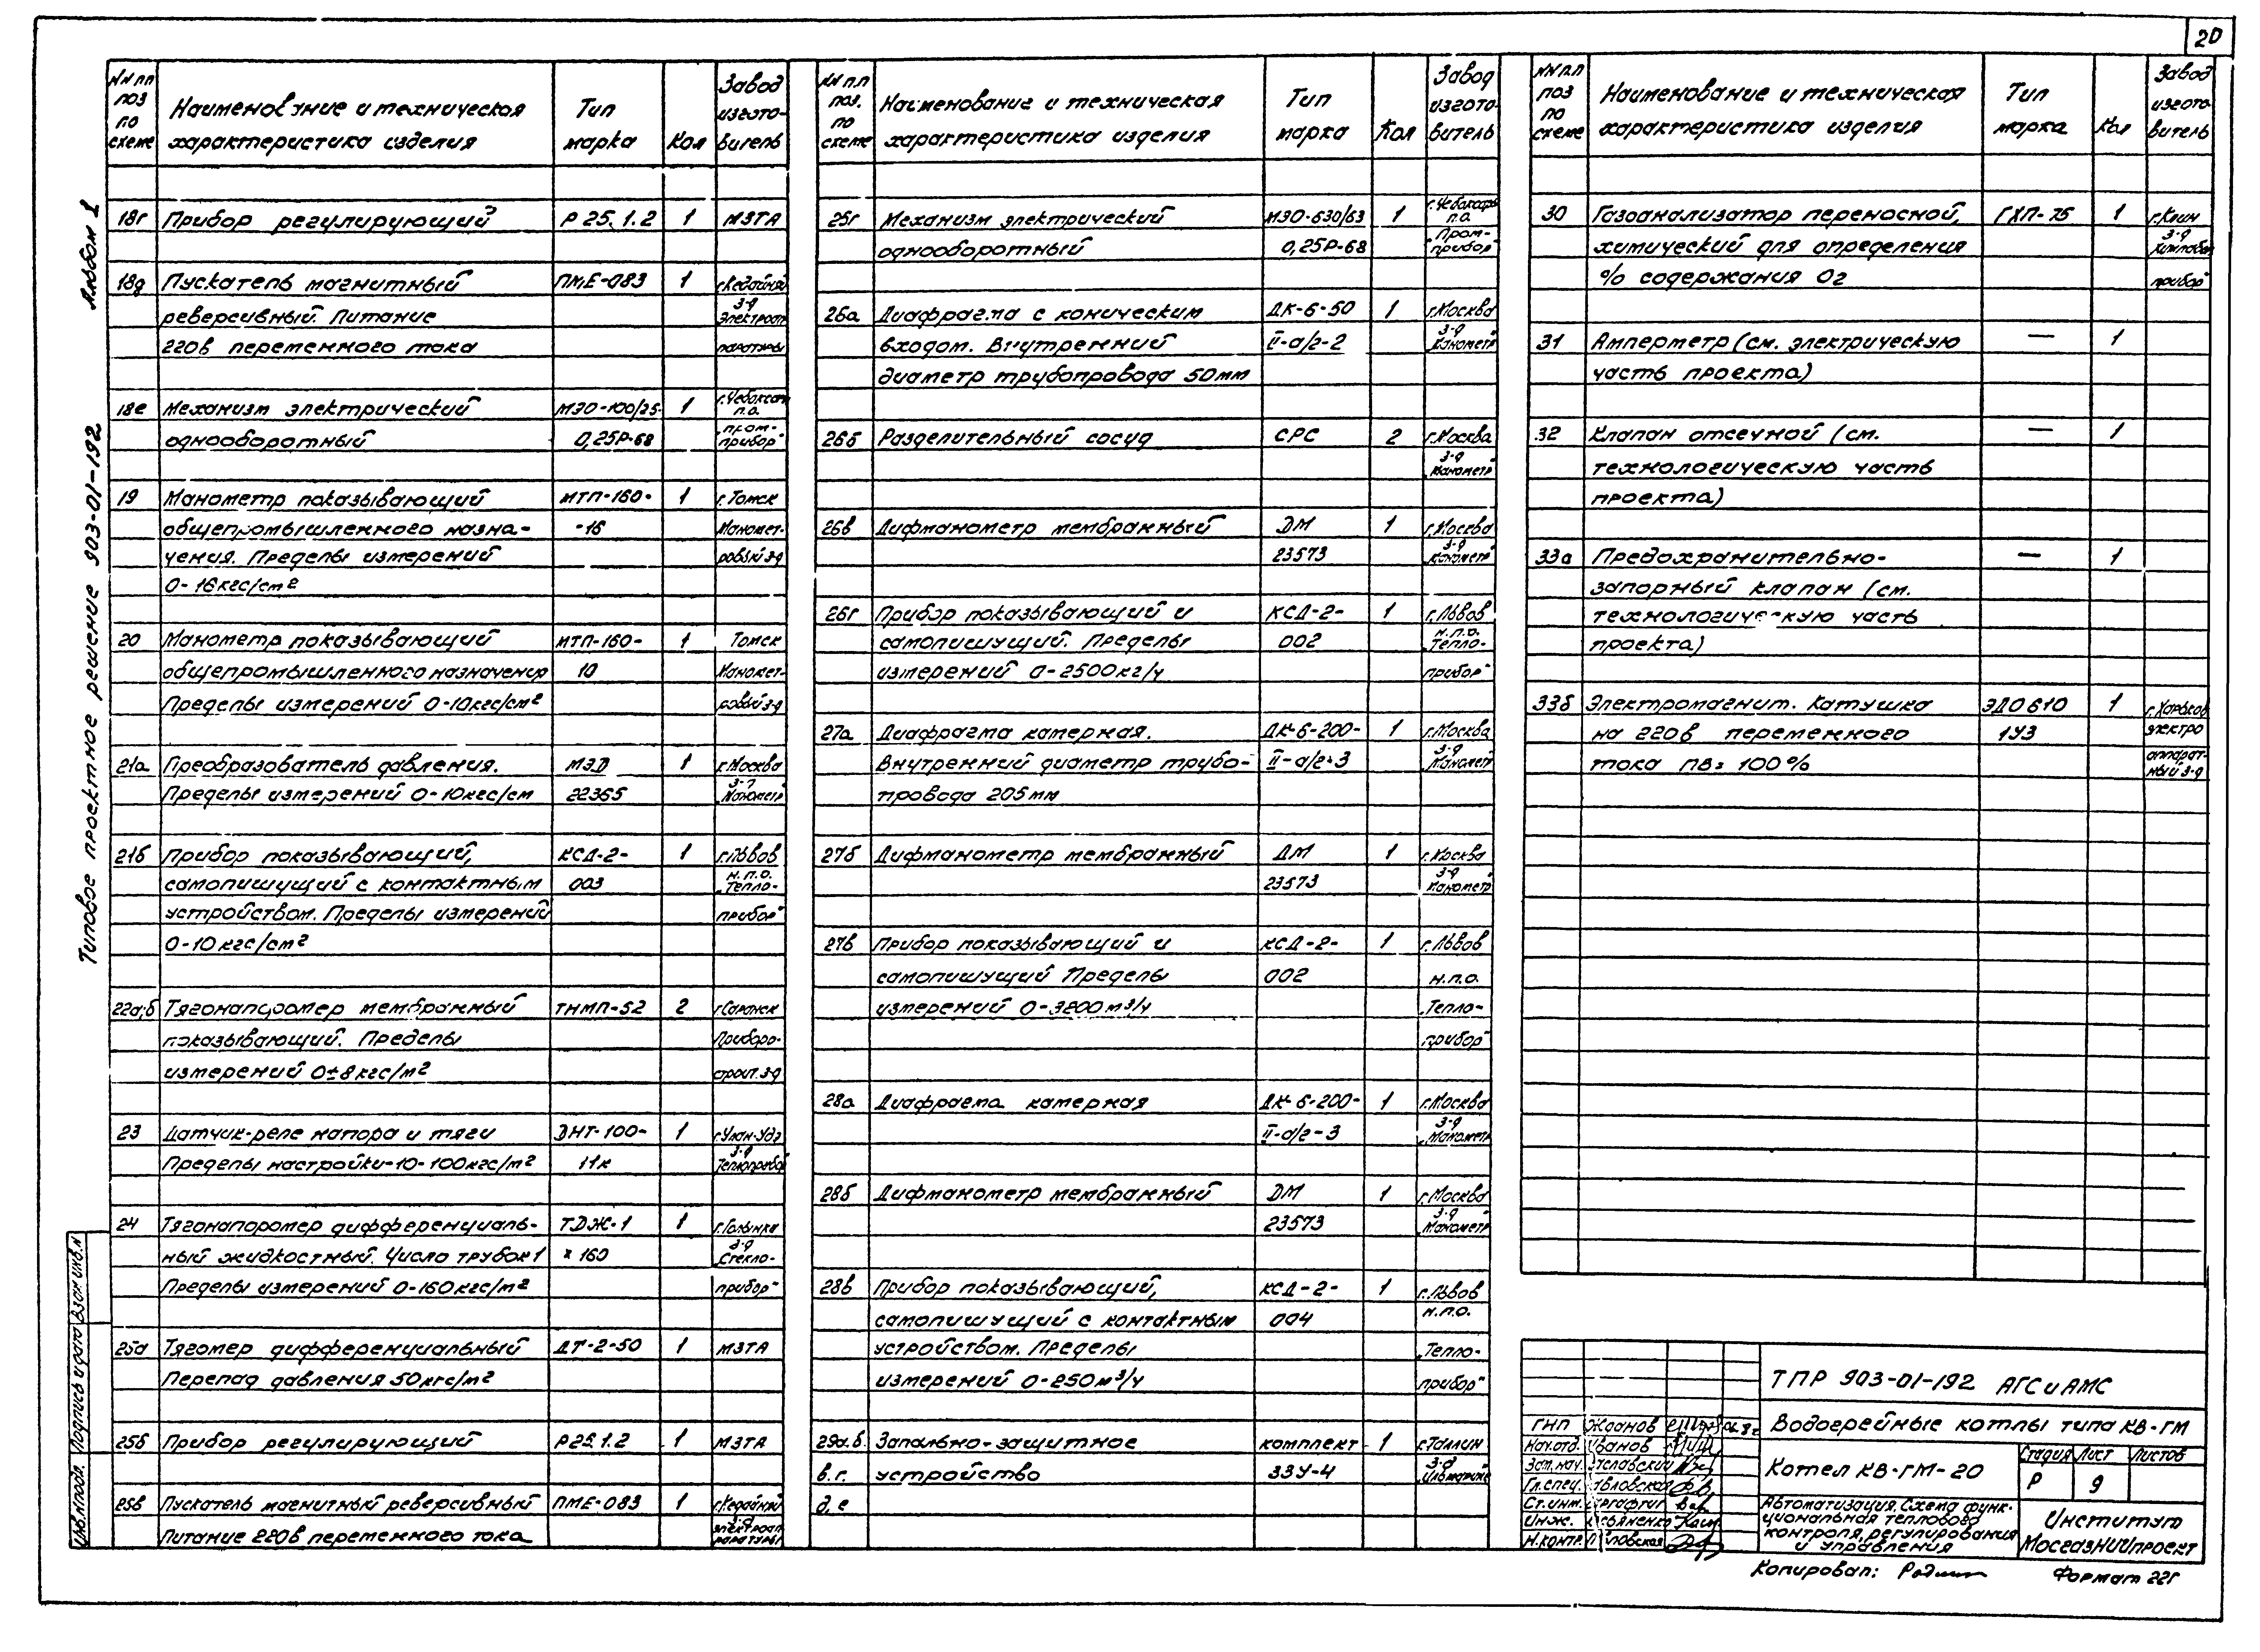 20
Альбом 1
Типовое проектное решение 903-01-192
NN пп поз по схеме | Наименование и техническая характеристика изделия | Тип марка | Кол | Завод изготовитель
18г Прибор регулирующий Р 25.1.2 1 МЗТА
18д Пускатель магнитный ПМЕ-083 1 г.Кедайняй
реверсивный. Питание з-д Электроап
220в переменного тока паратуры
18е Механизм электрический МЭО-100/25- 1 г.Чебоксары п.о.
однооборотный 0,25Р-68 „Пром-прибор"
19 Манометр показывающий МТП-160- 1 г.Томск
общепромышленного назна- -16 Маномет-
чения. Пределы измерений ровый з-д
0-16кгс/см²
20 Манометр показывающий МТП-160- 1 Томск
общепромышленного назначения 10 Маномет-
Пределы измерений 0-10кгс/см² ровый з-д
21а Преобразователь давления. МЭД 1 г.Москва
Пределы измерений 0-10кгс/см 22365 з-д „Манометр"
21б Прибор показывающий, КСД-2- 1 г.Львов
самопишущий с контактным 003 н.п.о. „Тепло-
устройством. Пределы измерений прибор"
0-10кгс/см²
22а,б Тягонапоромер мембранный ТНМП-52 2 г.Саранск
показывающий. Пределы Приборо-
измерений 0±8кгс/м² строит. з-д
23 Датчик-реле напора и тяги ДНТ-100- 1 г.Улан-Удэ
Пределы настройки-10-100кгс/м² 11к з-д Теплоприбор
24 Тягонапоромер дифференциаль- ТДЖ-1 1 г.Голынки
ный жидкостный. Число трубок 1 х 160 з-д „Стекло-
Пределы измерений 0-160кгс/м² прибор"
25а Тягомер дифференциальный ДТ-2-50 1 МЗТА
Перепад давления 50кгс/м²
25б Прибор регулирующий Р25.1.2 1 МЗТА
25в Пускатель магнитный реверсивный ПМЕ-083 1 г.Кедайняй
Питание 220в переменного тока з-д электроаппаратуры
NN п.п поз. по схеме | Наименование и техническая характеристика изделия | Тип марка | Кол | Завод изготовитель
25г Механизм электрический МЭО-630/63 1 г.Чебоксары п.о.
однооборотный 0,25Р-68 „Пром-прибор"
26а Диафрагма с коническим ДК-6-50 1 г.Москва
входом. Внутренний II-а/г-2 з-д „Манометр"
диаметр трубопровода 50мм
26б Разделительный сосуд СРС 2 г.Москва
з-д „Манометр"
26в Дифманометр мембранный ДМ 1 г.Москва
23573 з-д „Манометр"
26г Прибор показывающий и КСД-2- 1 г.Львов
самопишущий. Пределы 002 н.п.о. „Тепло-
измерений 0-2500кг/ч прибор"
27а Диафрагма камерная. ДК-6-200- 1 г.Москва
Внутренний диаметр трубо- II-а/г-3 з-д „Манометр"
провода 205мм
27б Дифманометр мембранный ДМ 1 г.Москва
23573 з-д „Манометр"
27в Прибор показывающий и КСД-2- 1 г.Львов
самопишущий Пределы 002 н.п.о.
измерений 0-3200м³/ч „Тепло-
прибор"
28а Диафрагма камерная ДК-6-200- 1 г.Москва
II-а/г-3 з-д „Манометр
28б Дифманометр мембранный ДМ 1 г.Москва
23573 з-д „Манометр"
28в Прибор показывающий, КСД-2- 1 г.Львов
самопишущий с контактным 004 н.п.о.
устройством. Пределы „Тепло-
измерений 0-250м³/ч прибор"
29а.б. Запально-защитное комплект 1 г.Таллин
в.г. устройство ЗЗУ-4 з-д „Ильмарине"
д.е
NN п.п поз по схеме | Наименование и техническая характеристика изделия | Тип марка | Кол | Завод изготовитель
30 Газоанализатор переносной, ГХП-75 1 г.Клин
химический для определения з-д Химлабор
% содержания О2 прибор
31 Амперметр (см. электрическую — 1
часть проекта)
32 Клапан отсечной (см. — 1
технологическую часть
проекта)
33а Предохранительно- — 1
запорный клапан (см.
технологическую часть
проекта)
33б Электромагнит. Катушка ЭД0610 1 г.Харьков
на 220в переменного 1У3 электро
тока ПВ=100% аппарат-ный з-д
Взам инв.N
Подпись и дата
Инв.N подл.
ТПР 903-01-192 АГС и АМС
Водогрейные котлы типа КВ-ГМ
ГНП Жданов
Нач.отд. Иванов
Зам.нач.
Гл.спец.
Ст.инж.
Инж.
Н.контр.
Котел КВ-ГМ-20
Стадия Лист Листов
Р 9
Автоматизация. Схема функ-
циональная теплового
контроля, регулирования
и управления
Институт
МосгазНИИпроект
Копировал:
Формат 22г